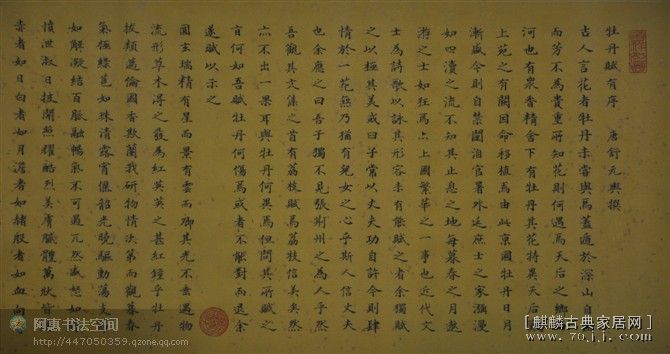 牡丹賦有序 唐舒元輿撰
古人言花者牡丹未嘗與焉蓋遁於深山自
而芳不為貴重所知花則何遇焉天后之鄉
河也有衆香精舍下有牡丹其花特異天后
上苑之有闕因命移植焉由此京國牡丹日月
漸盛今則自禁闥洎官署外延庶士之家瀰漫
如四瀆之流不知其止息之地每暮春之月遨
游之士如狂焉亦上國繁華之一事也近代文
士為詩歌以詠其形容未有能賦之者余獨賦
之以極其美或曰子常以丈夫功自許今則肆
情於一花無乃猶有兒女之心乎斯人信丈夫
也余應之曰吾子獨不見張荆州之為人乎然
吾觀其文集之首有荔枝賦焉荔枝信美矣然
亦不出一果耳與牡丹何異焉但問其所賦之
旨何如吾賦牡丹何傷焉或者不能對而退余
遂賦以示之
圓玄瑞精有星而景有雲而卿其光下垂遇物
流形草木得之發為紅英英之甚紅鍾乎牡丹
拔類邁倫國香欺蘭我研物情次第而觀暮春
氣極綠苞如珠清露宵偃韶光曉驅動蕩支
如解凝結百脈融暢氣不可遏兀然盛怒如
憤泄淑日披開照曜酷烈美膚膩體萬狀皆
赤者如日白者如月澹者如赭殷者如血向
阿惠书法空间
http://447050359.qzone.qq.com
[麒麟古典家居网]
www.76jj.com